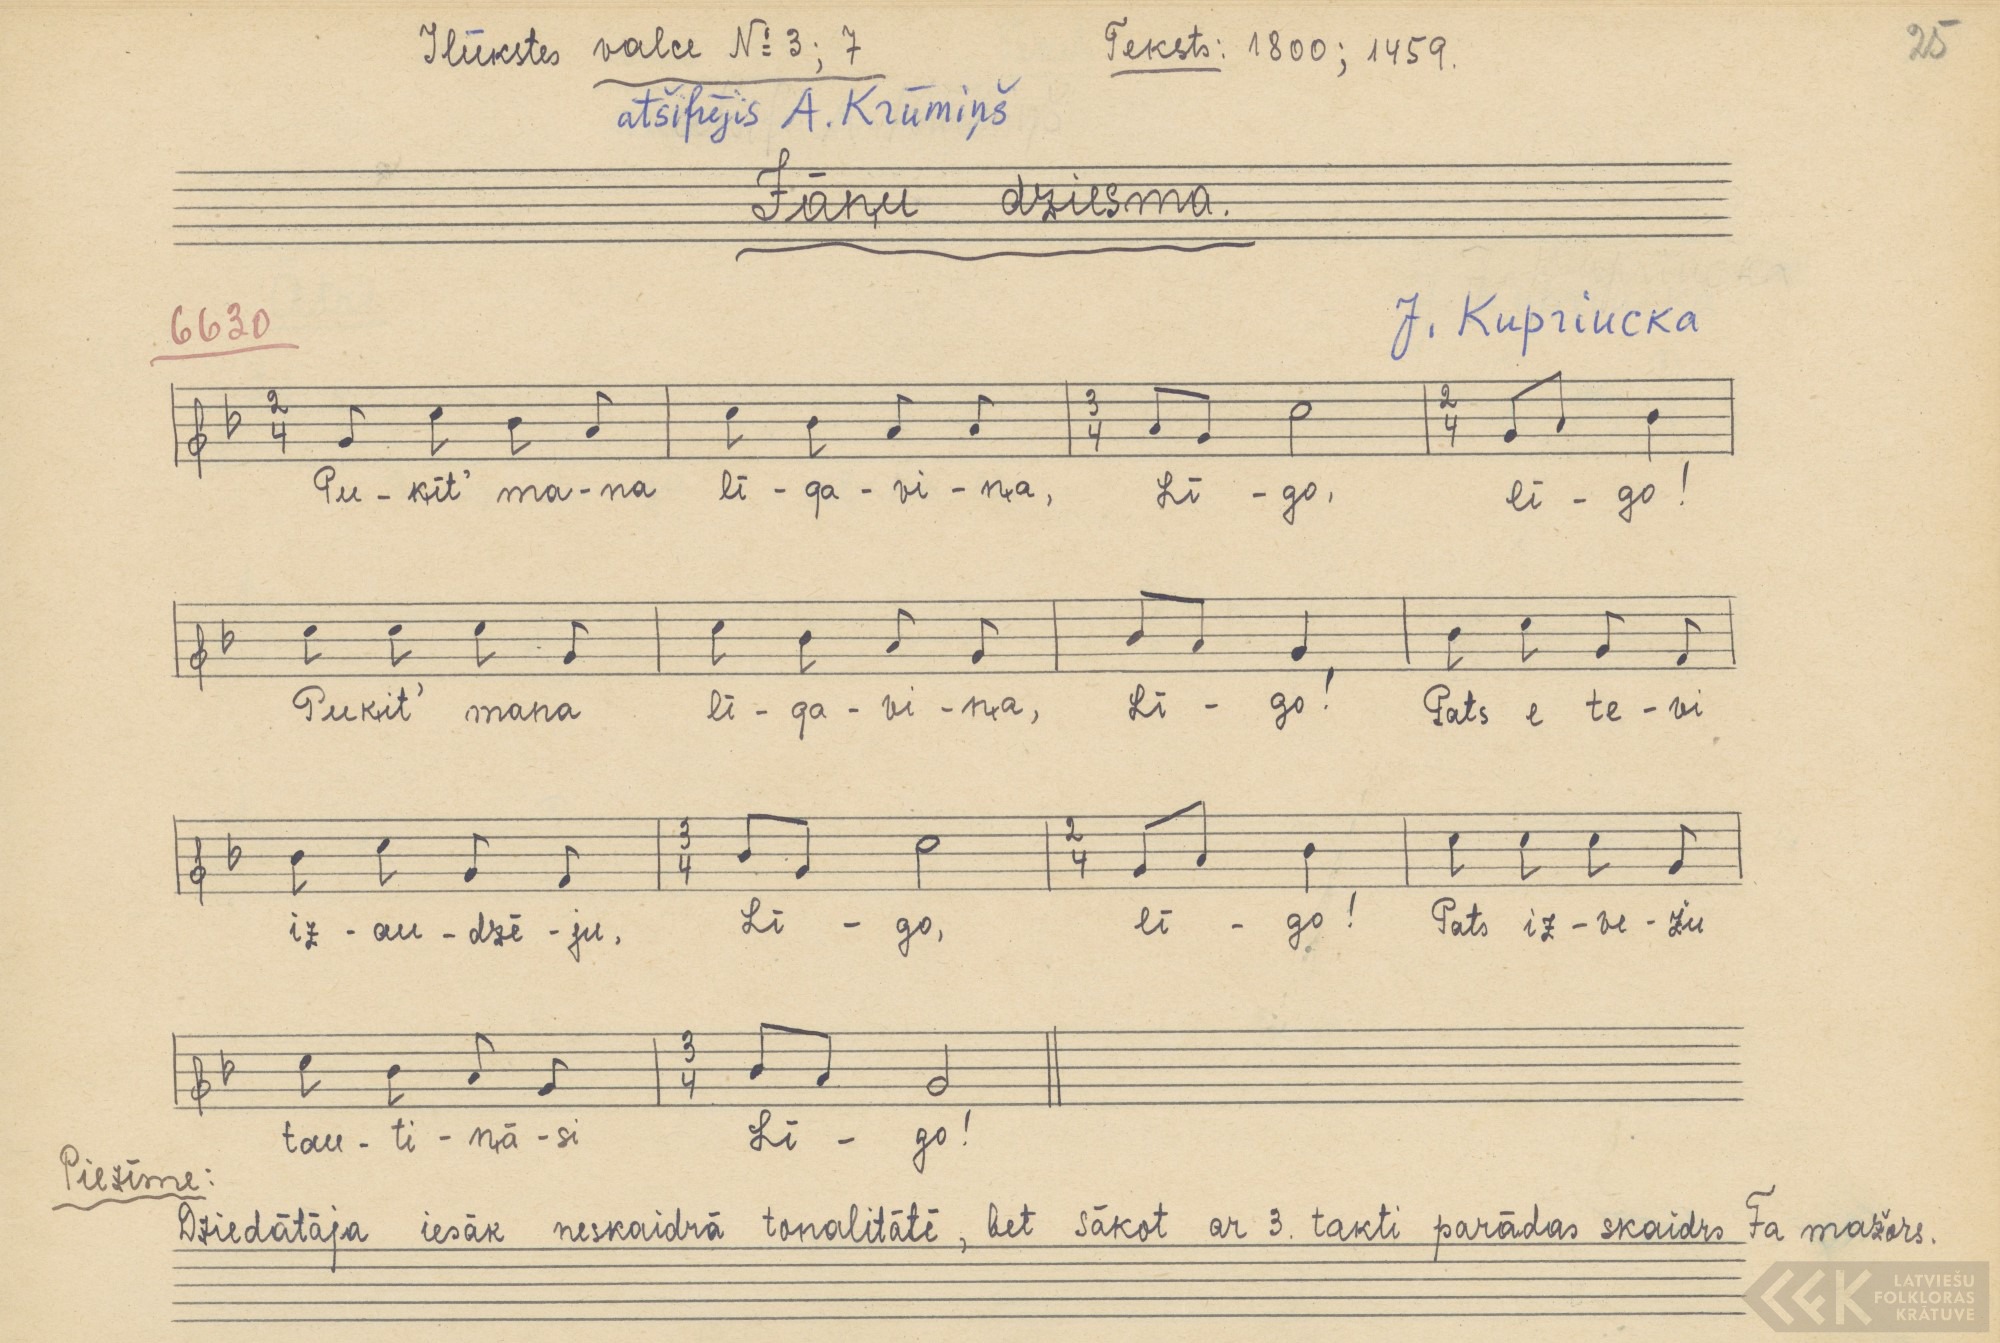 Ilūkstes valce № 3; 7 Teksts: 1800; 1459. 25
atšifrējis A. Krūmiņš
Jāņu dziesma.
6630
J. Kuprinska
2/4 3/4 2/4
Pu - ķīt' ma - na lī - ga - vi - ņa, Lī - go, lī - go!
Puķit' mana lī - ga - vi - ņa, Lī - go! Pats e te - vi
3/4 2/4
iz - au - dzē - ju, Lī - go, lī - go! Pats iz - ve - žu
3/4
tau - ti - ņā - si Lī - go!
Piezīme:
Dziedātāja iesāk neskaidrā tonalitātē, bet sākot ar 3. takti parādas skaidrs Fa mažors.
LFK LATVIEŠU
FOLKLORAS
KRĀTUVE